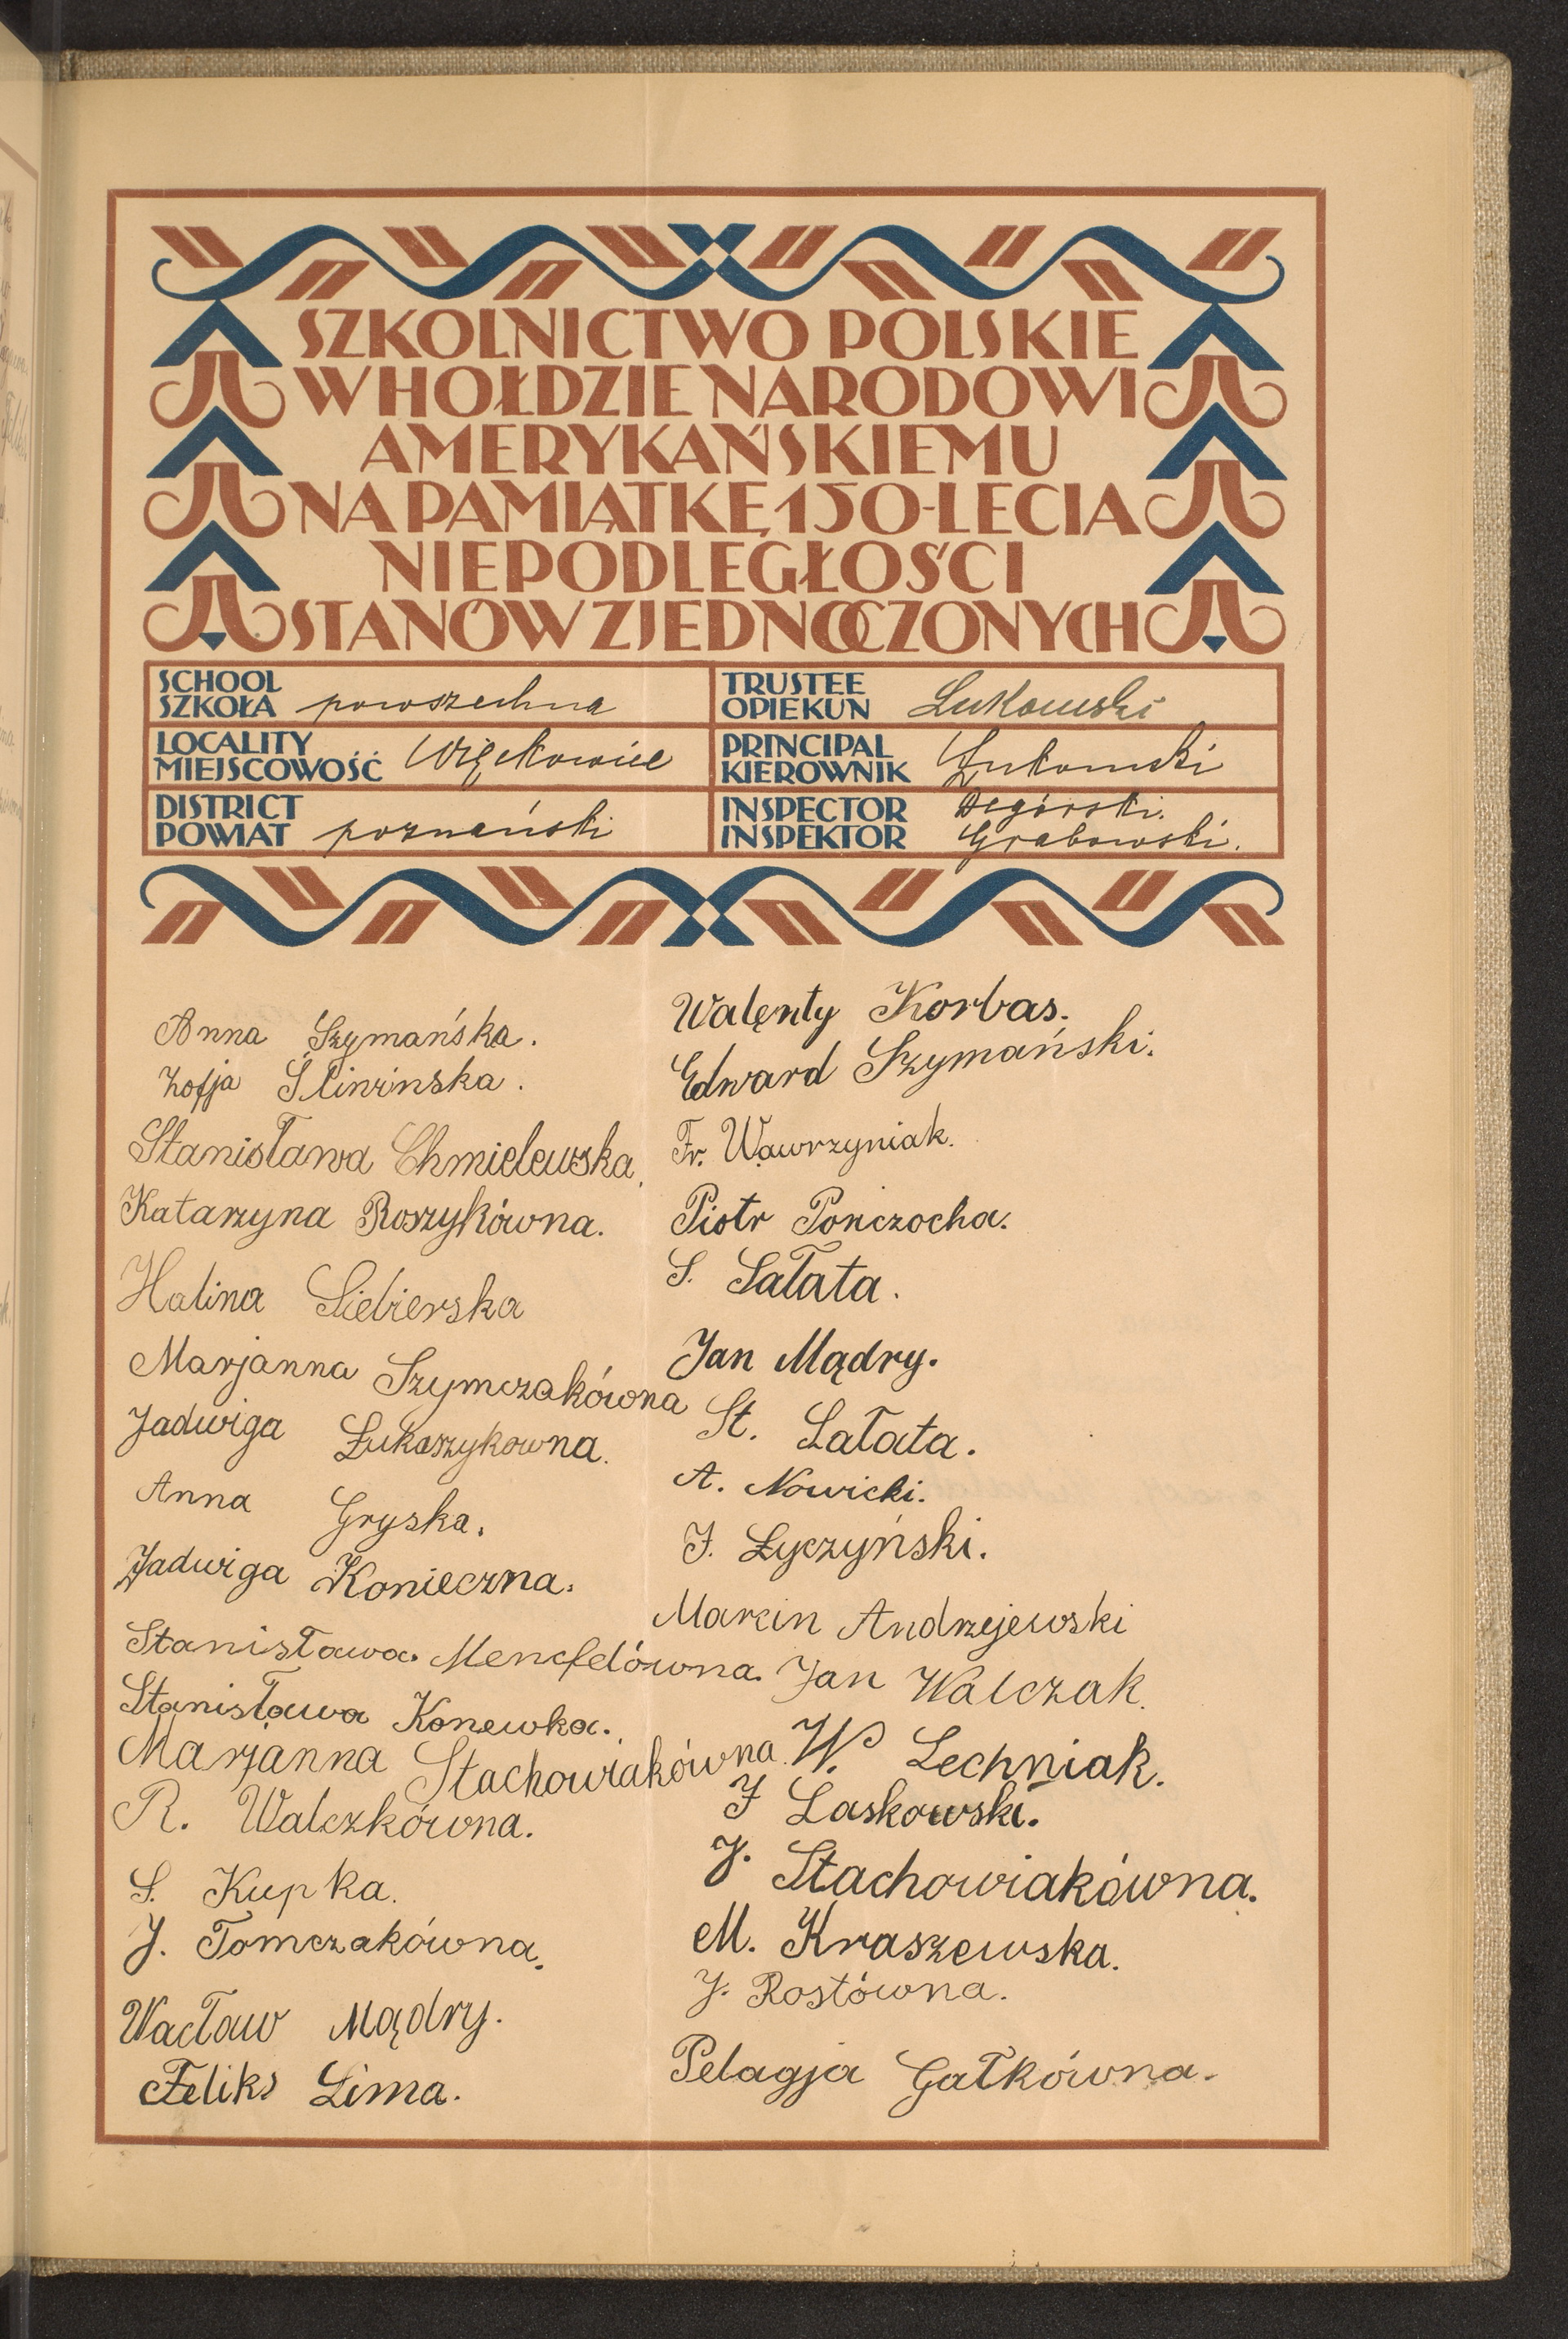 SZKOLNICTWO POLSKIE
W HOŁDZIE NARODOWI
AMERYKAŃSKIEMU
NA PAMIĄTKĘ 150-LECIA
NIEPODLEGŁOŚCI
STANÓW ZJEDNOCZONYCH
SCHOOL
SZKOŁA powszechna
TRUSTEE
OPIEKUN Łukomski
LOCALITY
MIEJSCOWOŚĆ Więckowice
PRINCIPAL
KIEROWNIK Łukomski
DISTRICT
POWIAT poznański
INSPECTOR Degórski.
INSPEKTOR Grabowski.
Anna Szymańska.
Zofja Śliwinska.
Stanisława Chmielewska,
Katarzyna Roszykówna.
Halina Siebierska
Marjanna Szymczakówna
Jadwiga Łukaszykowna.
Anna Gryska.
Jadwiga Konieczna.
Stanisława Mencfelówna.
Stanisława Konewka.
Marjanna Stachowiakówna.
R. Walczkówna.
S. Kupka.
J. Tomczakówna.
Wacław Mądry.
Feliks Lima.
Walenty Korbas.
Edward Szymański.
Fr. Wawrzyniak.
Piotr Pończocha.
S. Sałata.
Jan Mądry.
St. Sałata.
A. Nowicki.
J. Łyczyński.
Marcin Andrzejewski
Jan Walczak.
W. Lechniak.
J Laskowski.
J. Stachowiakówna.
M. Kraszewska.
J. Rostówna.
Pelagja Gałkówna.